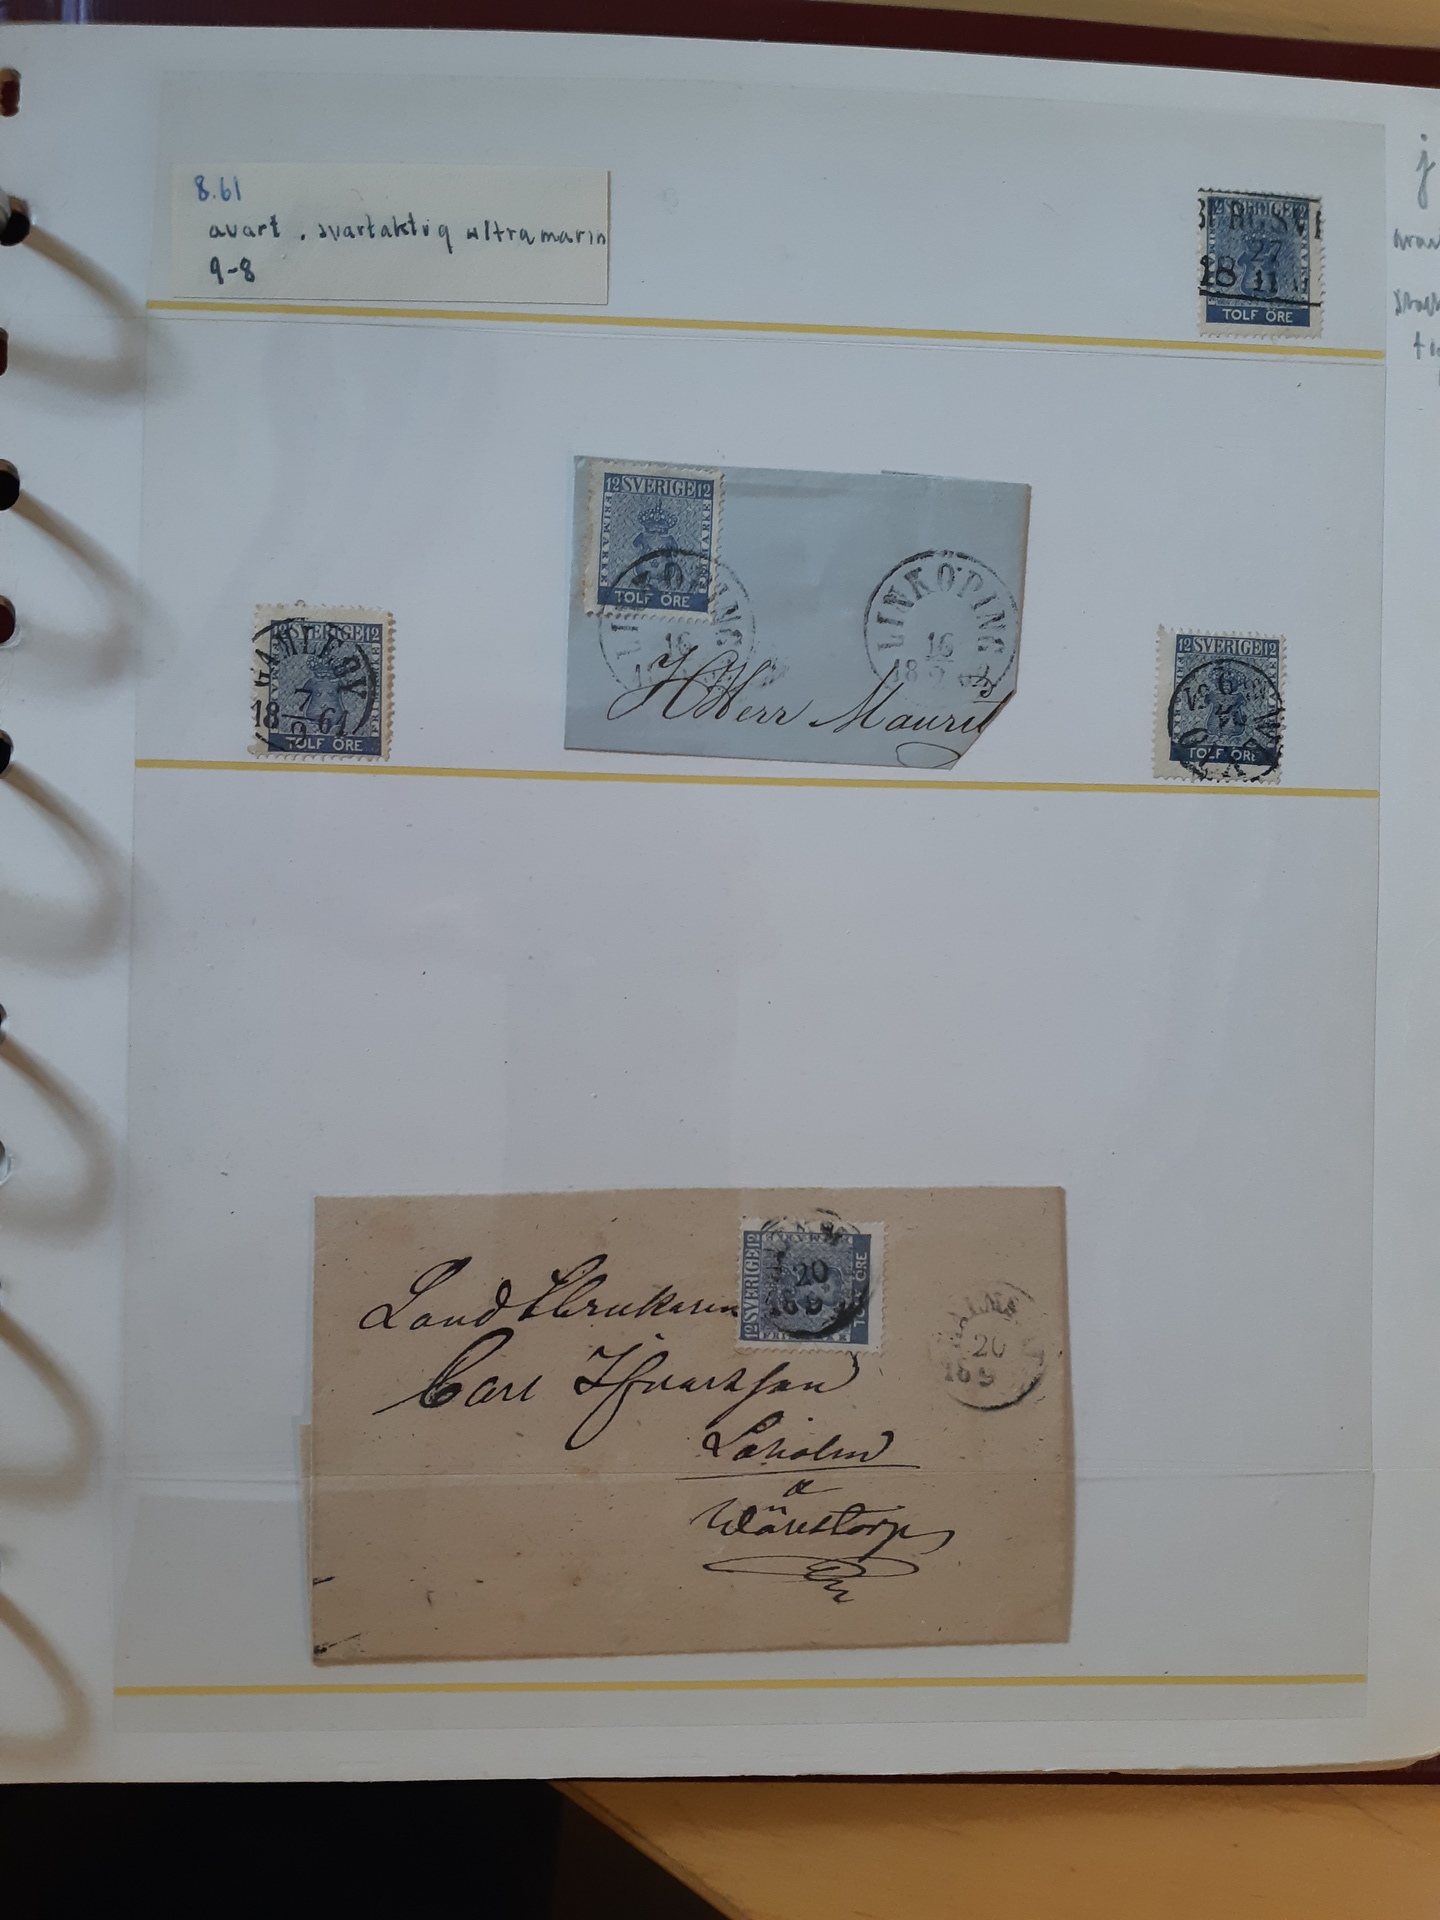 8.61
avart . svartaktig ultramarin
9-8
12 SVERIGE 12
27
18 11
TOLF ÖRE
12 SVERIGE 12
FRIMÄRKE FRIMÄRKE
TOLF ÖRE
LINKÖPING
16
LINKÖPING
16
18 2
Herr Maurit
12 SVERIGE 12
GAMLEBY
7
18 9 61
TOLF ÖRE
FRIMÄRKE
12 SVERIGE 12
TOLF ÖRE
12 SVERIGE 12
20
18 9
TOLF ÖRE
20
18 9
Landtbrukaren
Carl
Laholm
a